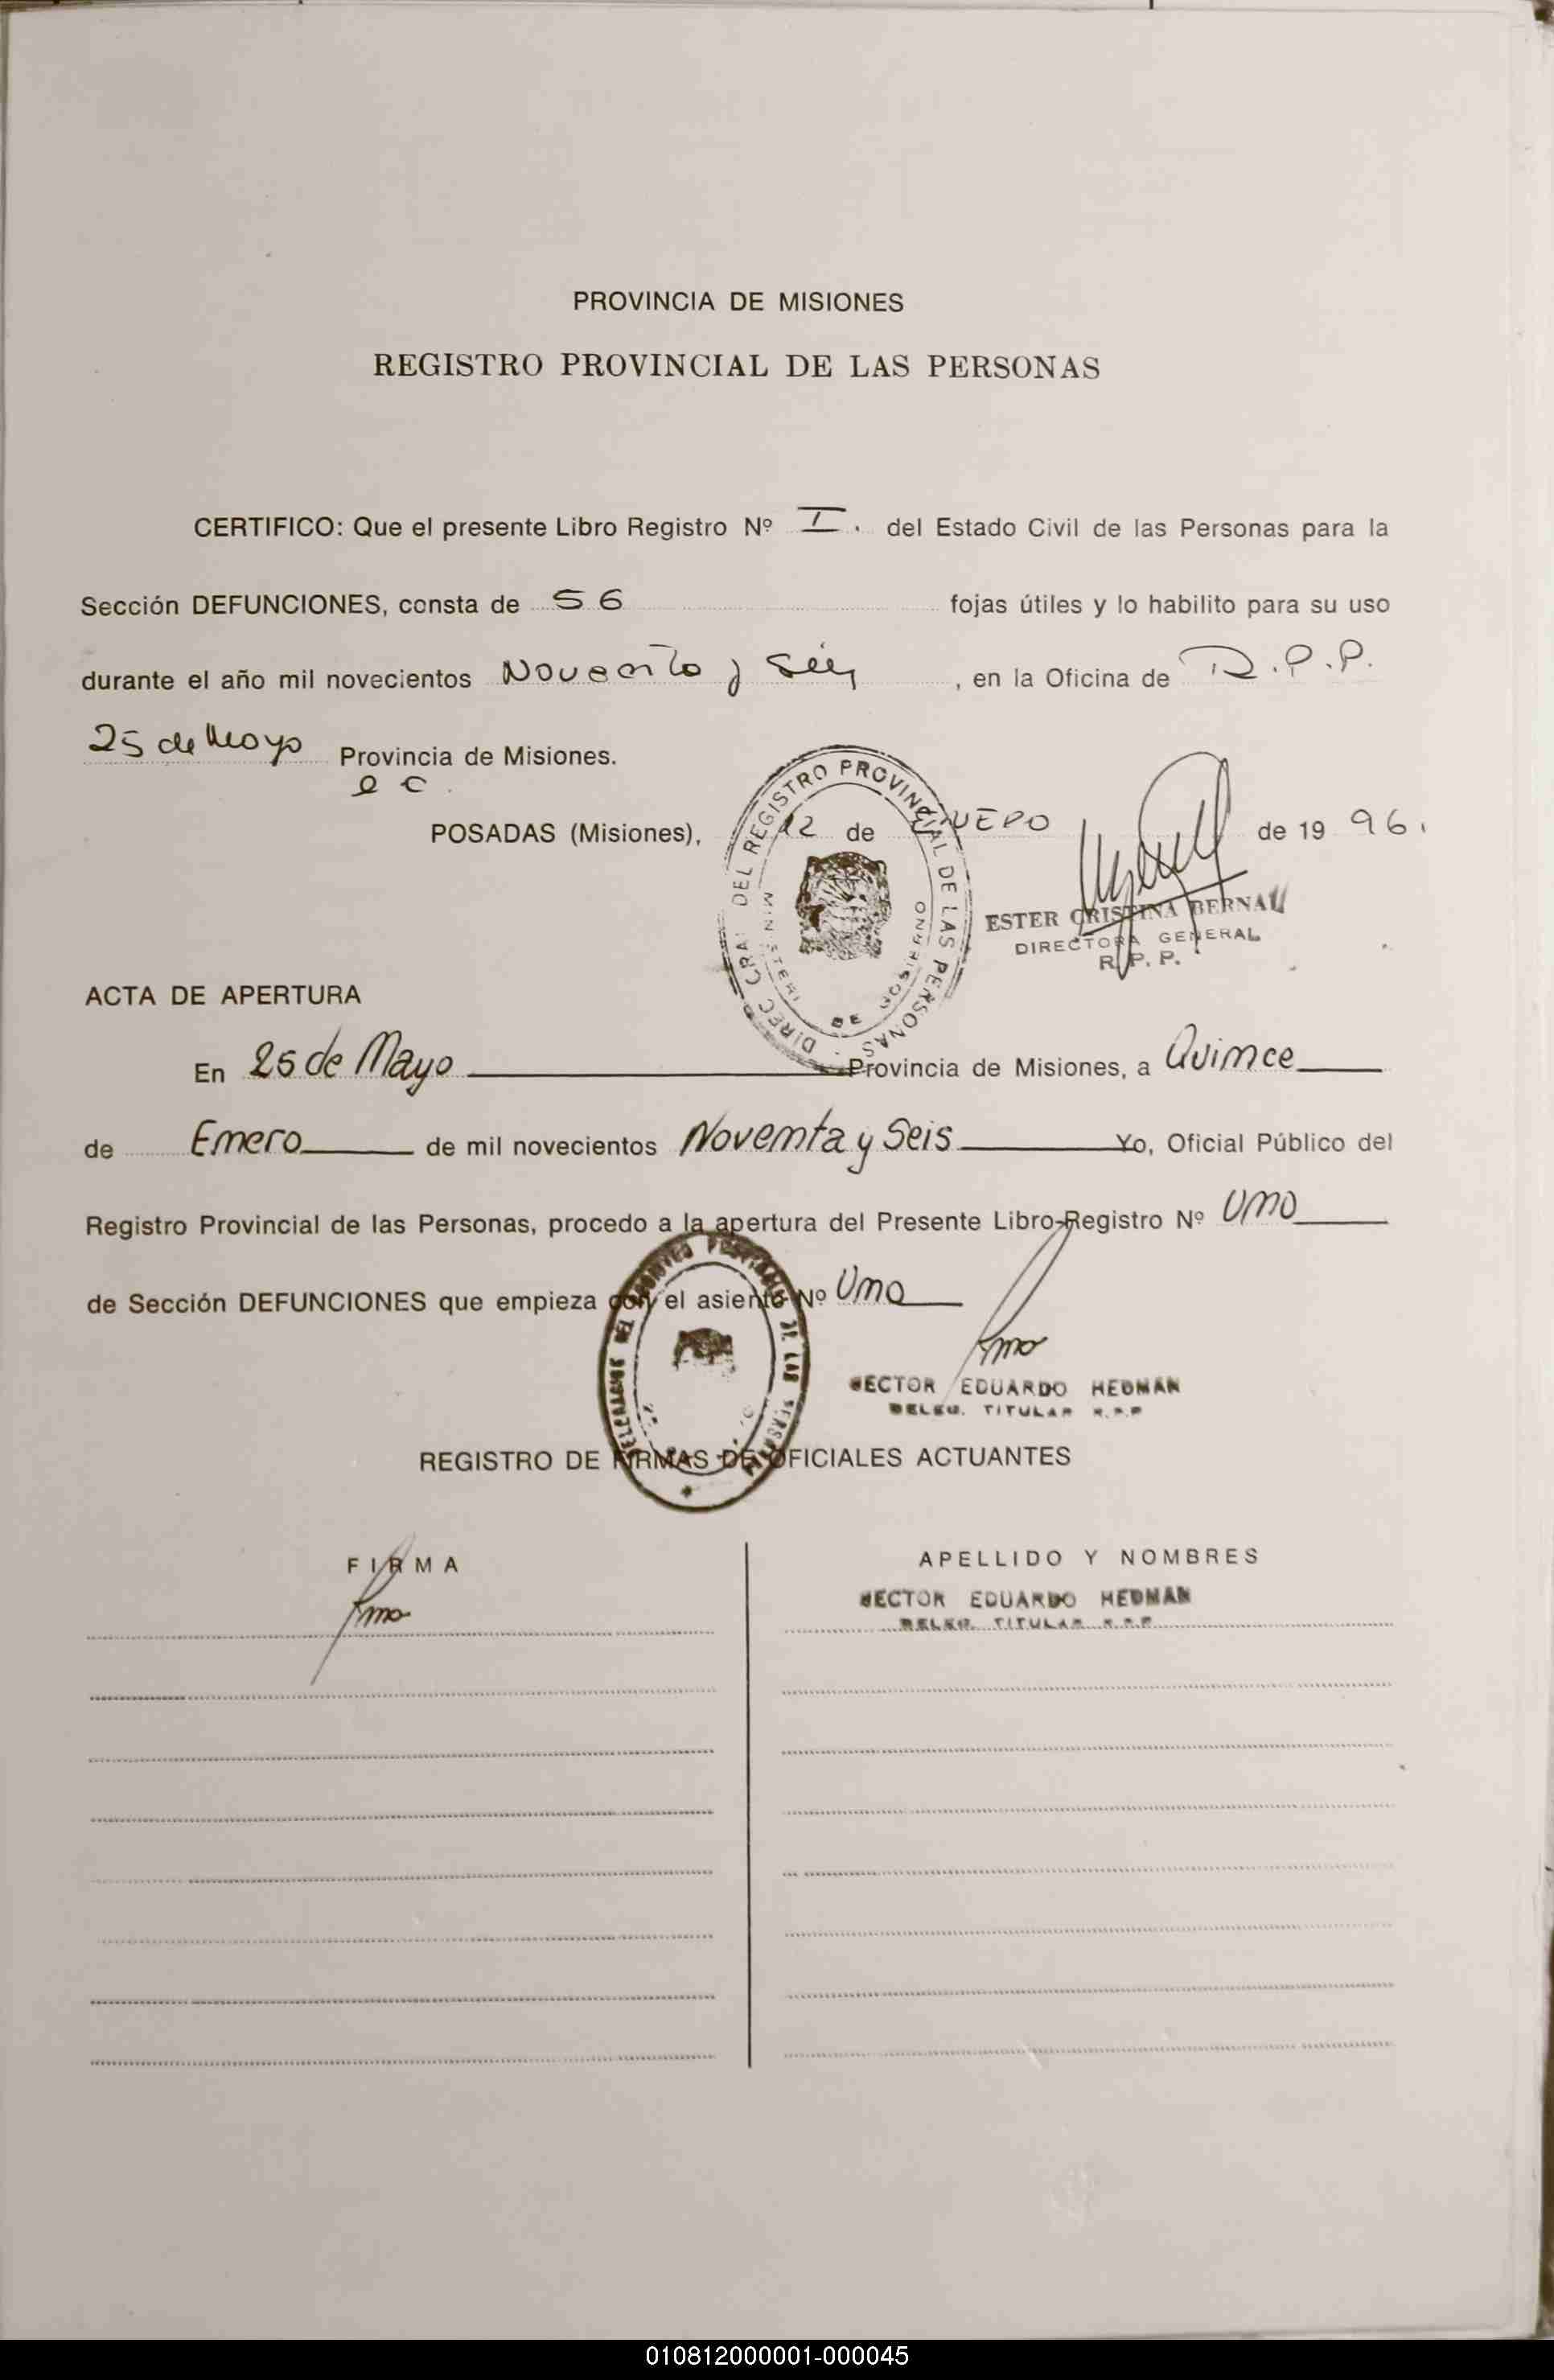 PROVINCIA DE MISIONES
REGISTRO PROVINCIAL DE LAS PERSONAS
CERTIFICO: Que el presente Libro Registro Nº I. del Estado Civil de las Personas para la
Sección DEFUNCIONES, consta de 56 fojas útiles y lo habilito para su uso
durante el año mil novecientos Noventa y Seis, en la Oficina de R.P.P.
25 de Mayo Provincia de Misiones.
POSADAS (Misiones), 12 de ENERO de 1996.
DIREC. GRAL DEL REGISTRO PROVINCIAL DE LAS PERSONAS
MINISTERI DE GOBIERNO
ESTER CRISTINA BERNAL
DIRECTORA GENERAL
R. P. P.
ACTA DE APERTURA
En 25 de Mayo Provincia de Misiones, a Quince
de Enero de mil novecientos Noventa y Seis Yo, Oficial Público del
Registro Provincial de las Personas, procedo a la apertura del Presente Libro-Registro Nº Uno
de Sección DEFUNCIONES que empieza con el asiento Nº Uno
HECTOR EDUARDO HEDMAN
DELEG. TITULAR R.P.P
REGISTRO DE FIRMAS DE OFICIALES ACTUANTES
FIRMA APELLIDO Y NOMBRES
HECTOR EDUARDO HEDMAN
DELEG. TITULAR R.P.P
010812000001-000045